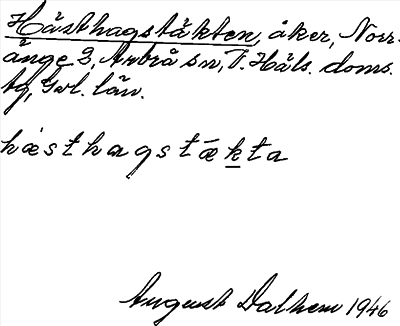 Hästhagstäkten, åker, Norr-
änge 2, Arbrå sn, V. Häls. doms.
tg, Gvl. län.
hæsthagstækta
August Dalhem 1946